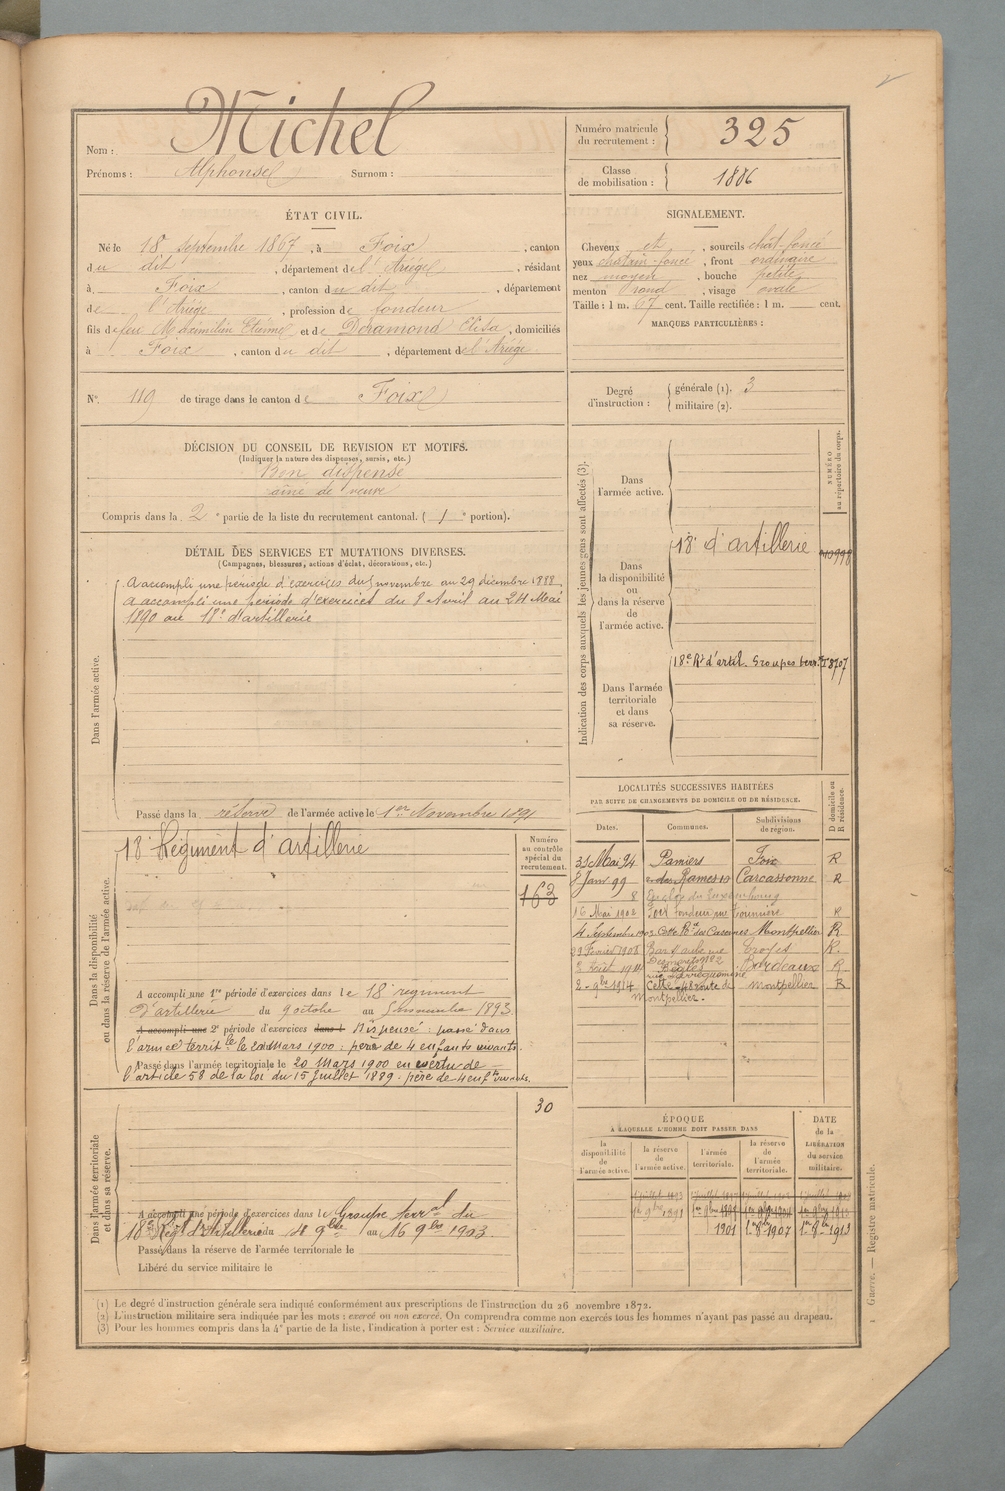 Nom : Michel
Prénoms : Alphonse Surnom :
Numéro matricule du recrutement : 325
Classe de mobilisation : 1886
ÉTAT CIVIL.
Né le 18 septembre 1867, à Foix, canton
du dit, département de l'Ariège, résidant
à Foix, canton du dit, département
de l'Ariège, profession de fondeur
fils de feu Maximilien Etienne et de Deramond Elisa, domiciliés
à Foix, canton du dit, département de l'Ariège
N° 119 de tirage dans le canton de Foix
SIGNALEMENT.
Cheveux et, sourcils chat-foncé
yeux chatain-foncé, front ordinaire
nez moyen, bouche petite
menton rond, visage ovale
Taille : 1 m. 67 cent. Taille rectifiée : 1 m. cent.
MARQUES PARTICULIÈRES :
Degré d'instruction : générale (1). 3
militaire (2).
DÉCISION DU CONSEIL DE REVISION ET MOTIFS.
(Indiquer la nature des dispenses, sursis, etc.)
Bon dispensé
aîné de veuve
Compris dans la 2e partie de la liste du recrutement cantonal. (1e portion).
DÉTAIL DES SERVICES ET MUTATIONS DIVERSES.
(Campagnes, blessures, actions d'éclat, décorations, etc.)
Dans l'armée active.
A accompli une période d'exercices du 5 novembre au 29 décembre 1888
A accompli une période d'exercices du 8 Avril au 24 Mai
1890 au 18e d'artillerie
Passé dans la réserve de l'armée active le 1er Novembre 1891
Indication des corps auxquels les jeunes gens sont affectés (3).
NUMÉRO au répertoire du corps.
Dans l'armée active.
Dans la disponibilité ou dans la réserve de l'armée active.
18e d'artillerie
Dans l'armée territoriale et dans sa réserve.
18e Rt d'artil. Groupes terr. 8707
Dans la disponibilité ou dans la réserve de l'armée active.
18e Régiment d'artillerie
Numéro au contrôle spécial du recrutement.
163
A accompli une 1re période d'exercices dans le 18e régiment
d'artillerie du 9 octobre au 5 novembre 1893.
A accompli une 2e période d'exercices dans l Dispensé : passé dans
l'armée territle le 20 Mars 1900 : père de 4 enfants vivants.
Passé dans l'armée territoriale le 20 Mars 1900 en vertu de
l'article 58 de la loi du 15 Juillet 1889. père de 4 enfts vivants.
30
LOCALITÉS SUCCESSIVES HABITÉES
PAR SUITE DE CHANGEMENTS DE DOMICILE OU DE RÉSIDENCE.
Dates. Communes. Subdivisions de région. D domicile ou R résidence.
31 Mai 94 Pamiers Foix R
8 Janv 99 Carcassonne R
16 Mai 1902 R
4 Septembre 1903 Cette Montpellier R
29 Février 1908 Bar s/ aube Troyes R.
Bègles Bordeaux R
2 - 9bre 1914 Cette Montpellier R
Montpellier.
Dans l'armée territoriale et dans sa réserve.
A accompli une période d'exercices dans le Groupe terral du
18e Régt d'Artillerie du au 16 9bre 1903.
Passé dans la réserve de l'armée territoriale le
Libéré du service militaire le
ÉPOQUE
A LAQUELLE L'HOMME DOIT PASSER DANS
la disponibilité de l'armée active. la réserve de l'armée active. l'armée territoriale. la réserve de l'armée territoriale.
DATE de la LIBÉRATION du service militaire.
1er 9bre 1891
1901 1er 8bre 1907 1er 8bre 1913
(1) Le degré d'instruction générale sera indiqué conformément aux prescriptions de l'instruction du 26 novembre 1872.
(2) L'instruction militaire sera indiquée par les mots : exercé ou non exercé. On comprendra comme non exercés tous les hommes n'ayant pas passé au drapeau.
(3) Pour les hommes compris dans la 4e partie de la liste, l'indication à porter est : Service auxiliaire.
Guerre. — Registre matricule.